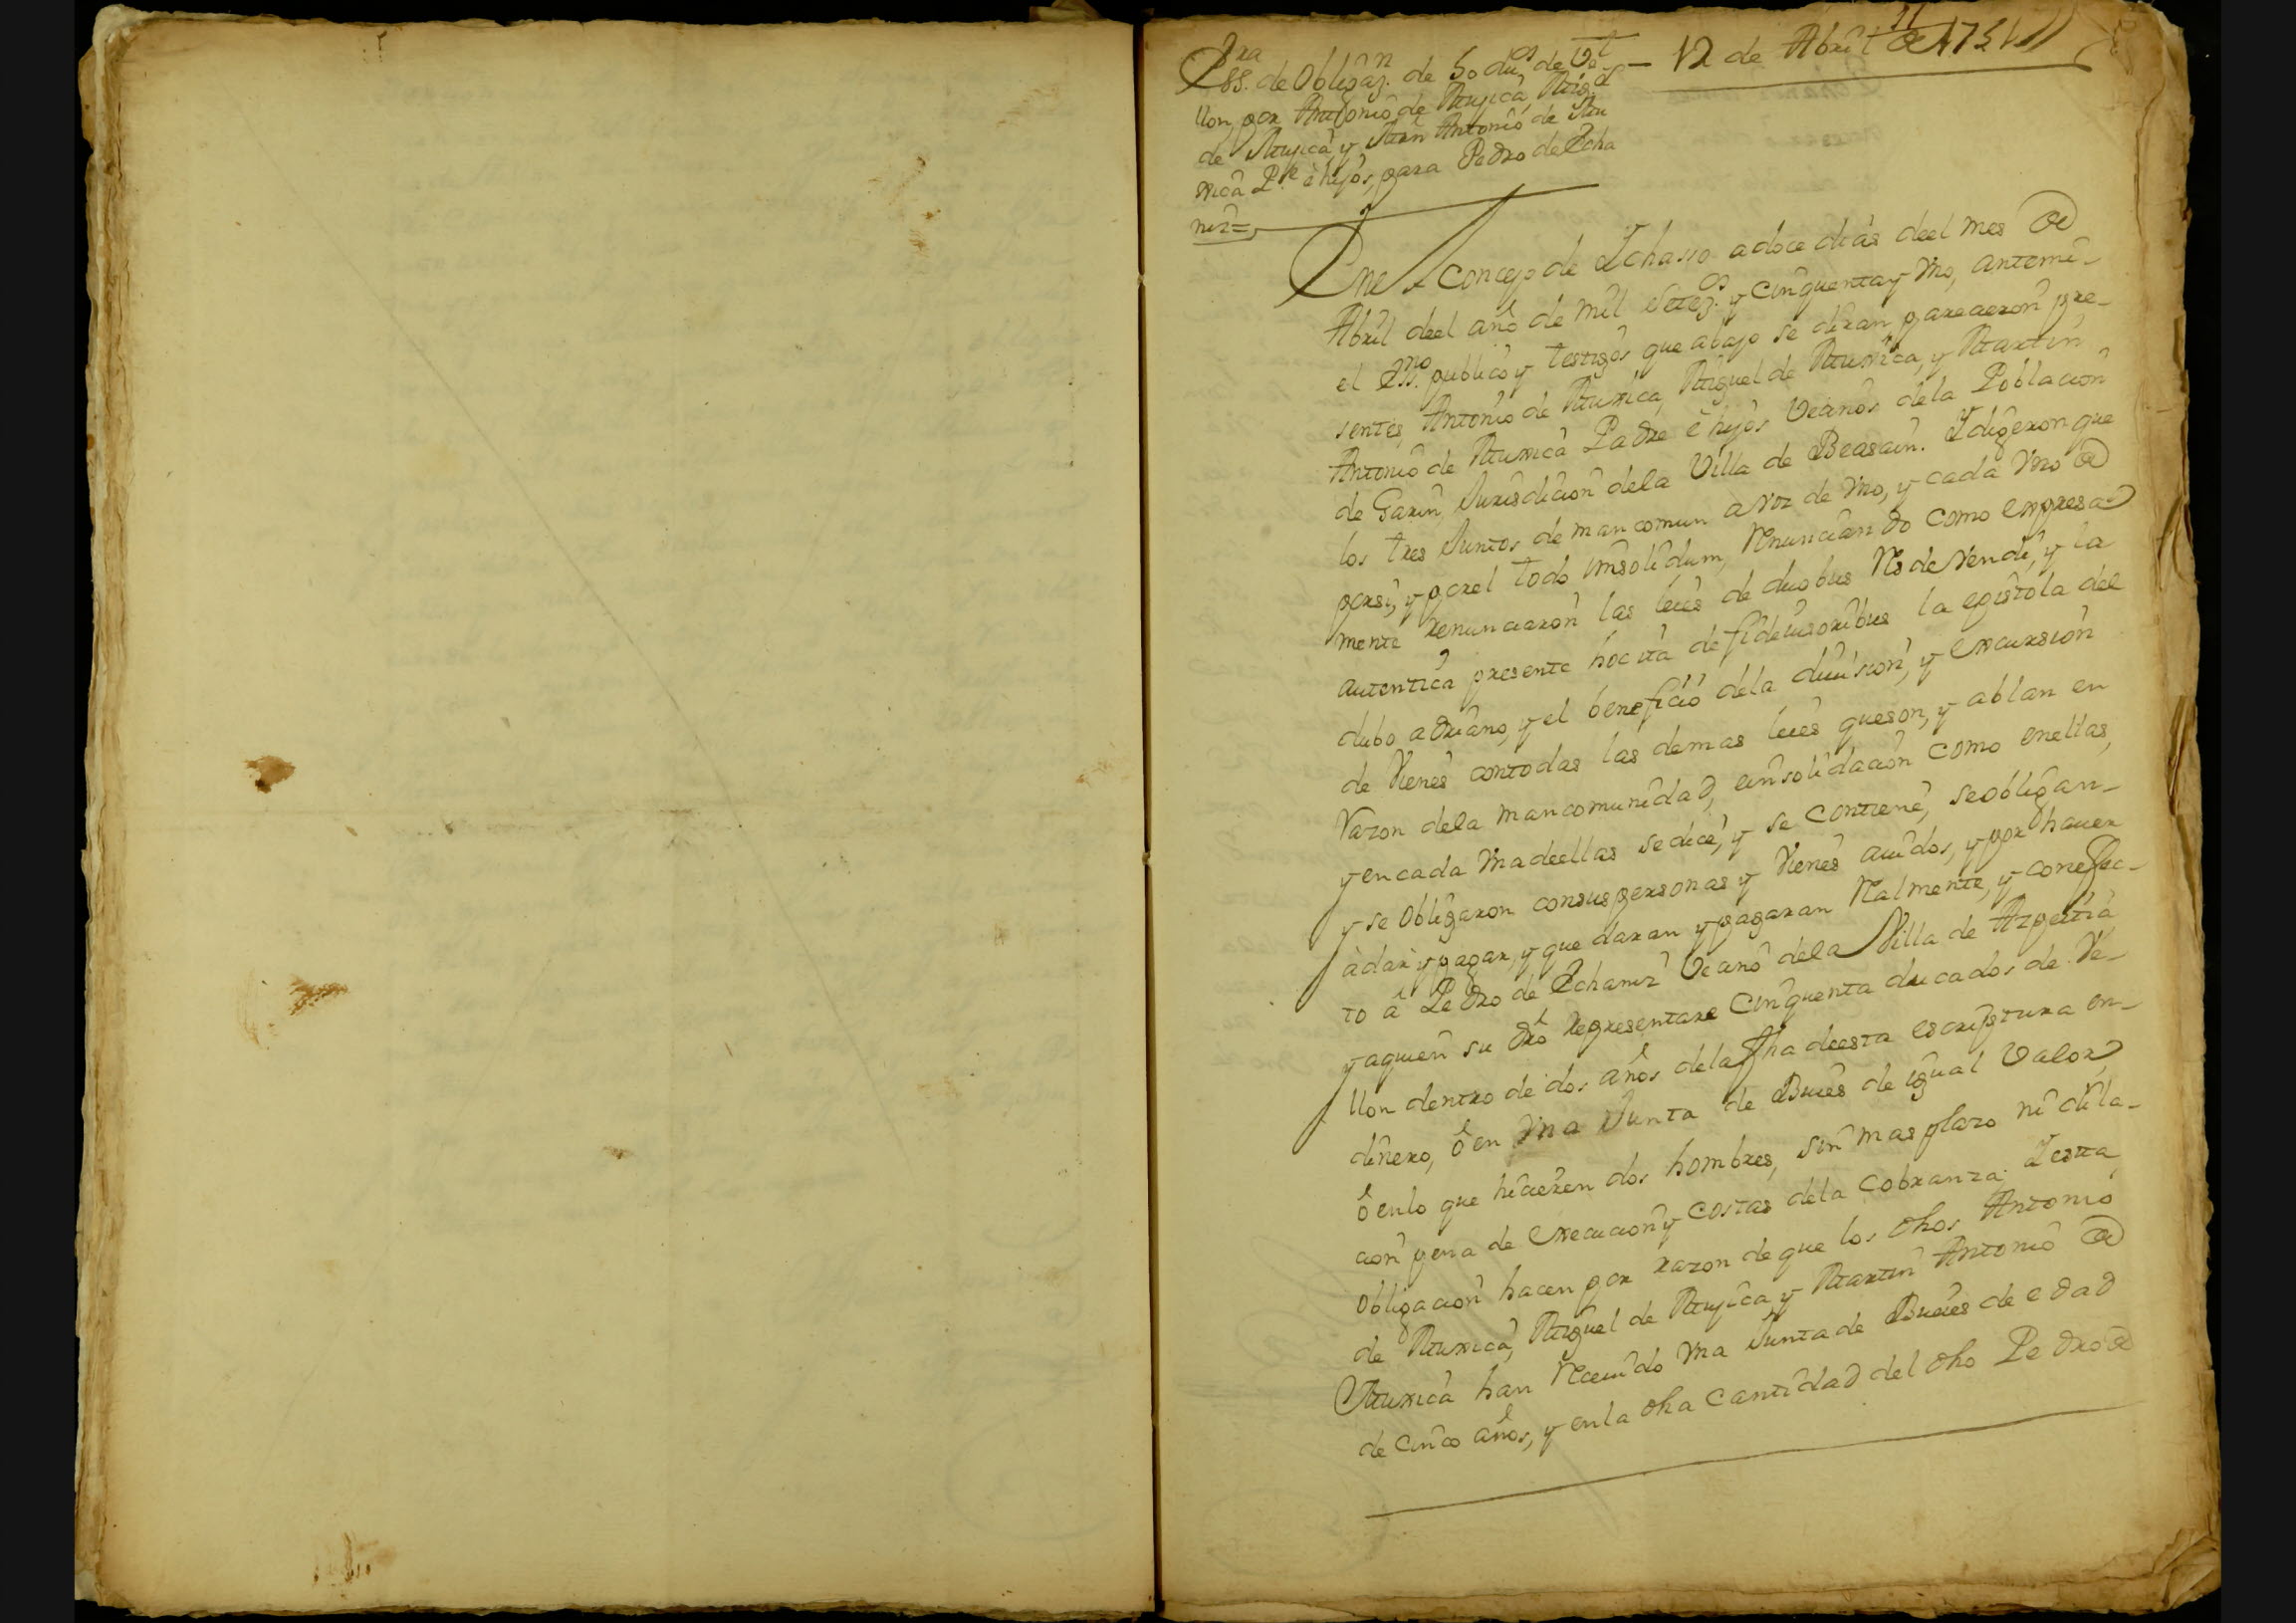 11
Essra. de Obligazn. de 50 dus de Ve
llon por Antonio de Mujica, Migl
de Mujica y Mrn Antonio de Mu
xica Pe. è hijos, para Pedro de Echa
niz=
12 de Abril de 1751
En el Concejo de Ichasso a doce dias deel mes de
Abril deel año de mil Setezos. y cinquenta y Uno, antemi
el Essno. publico y testigos que abajo se diran, parecieron pre-
sentes Antonio de Muxica, Miguel de Muxica, y Martin
Antonio de Muxica Padre è hijos Vecinos dela Poblacion
de Garin, Jurisdicion dela Villa de Beasain. I digeron que
los tres Juntos de mancomun a voz de Uno, y cada Uno de
porsi, y porel todo insolidum, Renunciando como expresa
mente renunciaron las leies de duobus Res de vendi, y la
autentica presente hoc ita de fideiusoribus la epistola del
dibo adriano, y el beneficio dela division, y excursion
de Vienes contodas las demas leies queson, y ablan en
Razon dela mancomunidad, einsolidacion como enellas,
y en cada Una deellas sedice, y se contiene, seobligan-
y se obligaron consus personas y Vienes auidos, y por hauer
à dar y pagar, y que daran y pagaran Realmente, y conefec-
to â Pedro de Echaniz Vecino dela Villa de Azpeitia,
y aquien su dro Representare Cinquenta ducados de Ve-
llon dentro de dos años dela fha deesta escriptura en-
dinero, ô en Una Junta de Bueis de igual Valor,
ô enlo que hicieren dos hombres, sin mas plazo ni dila-
cion pena de execucion y costas dela Cobranza; I esta
obligacion hacen por razon de que los dhos Antonio
de Muxica, Miguel de Mujica y Martin Antonio de
Muxica han Receuido Una Junta de Bueies de edad
de cinco años, y enla dha Cantidad del dho Pedro de